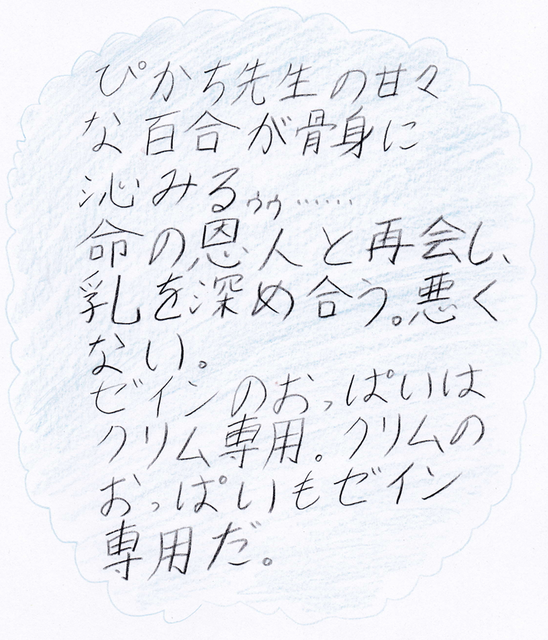 ぴかち先生の甘々
な百合が骨身に
沁みるゥゥ……
命の恩人と再会し、
乳を深め合う。悪く
ない。
ゼインのおっぱいは
クリム専用。クリムの
おっぱいもゼイン
専用だ。